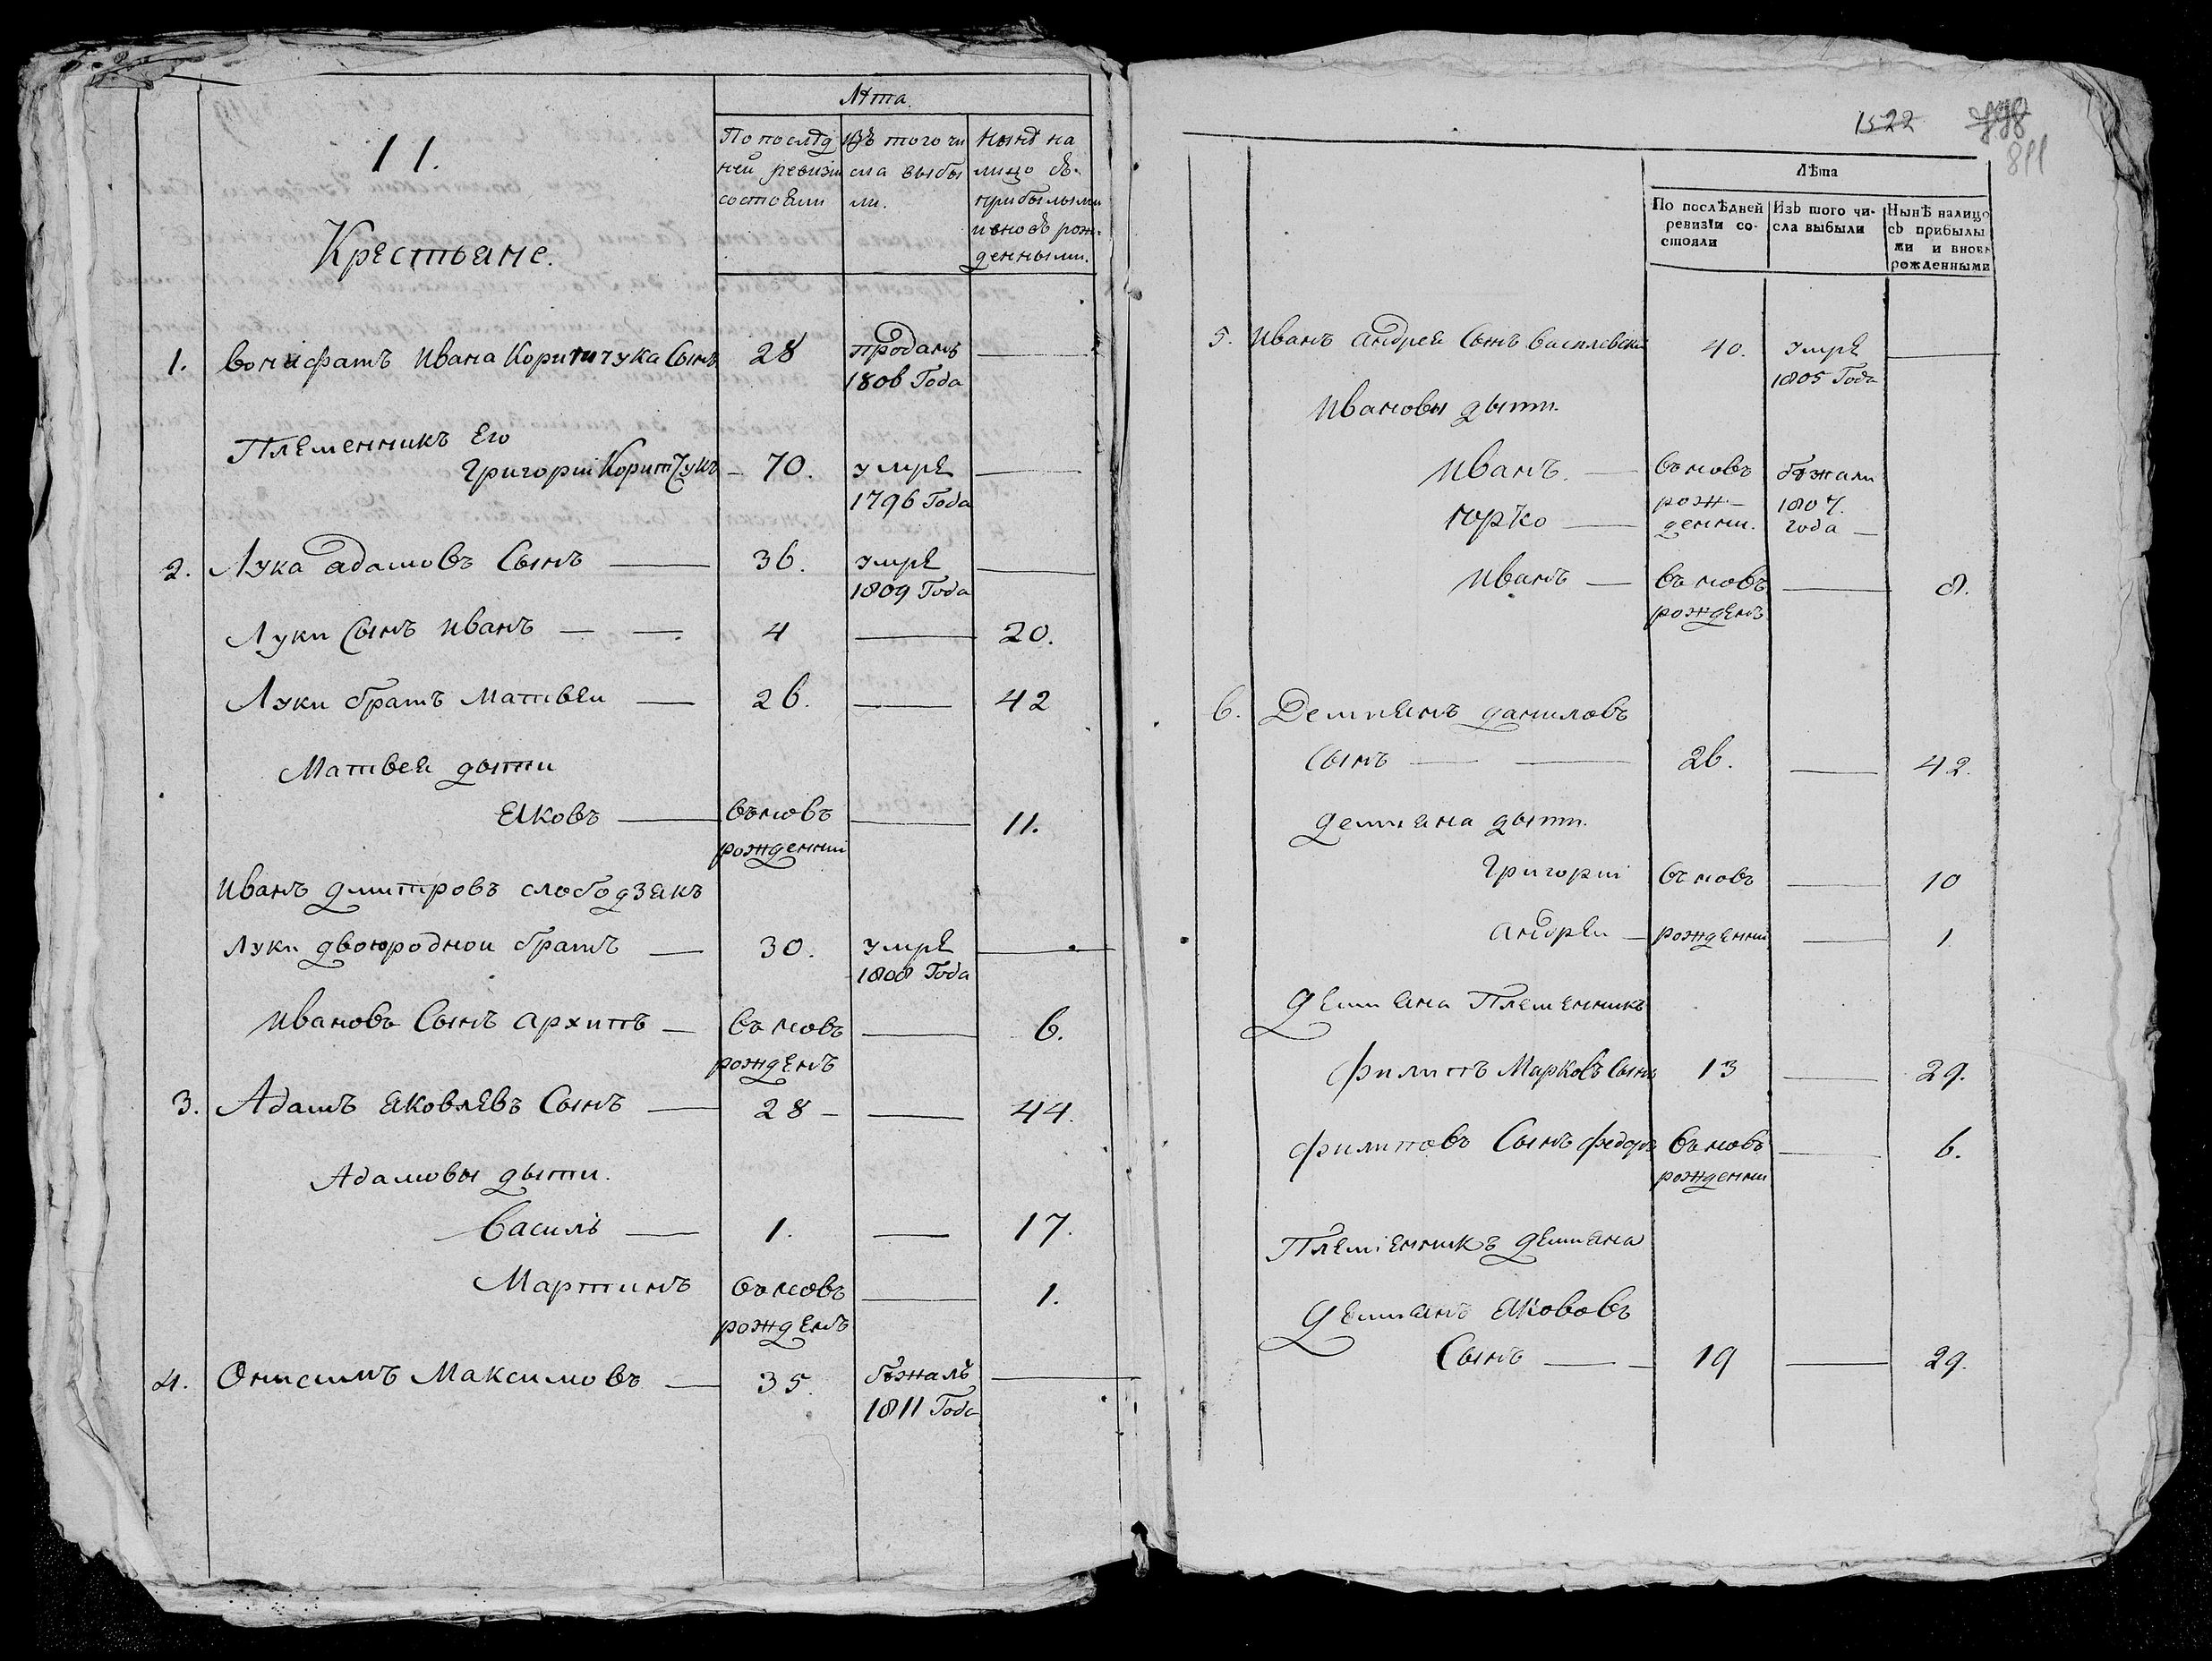 11.
Крестьяне.
Лѣта.
По послѣд
ней ревизіи
состояли
Изъ того чи
сла выбы
ли.
Нынѣ на
лицо съ
прибылыми
и вновь рож
денными.
1. Вонифатъ Ивана Коритчука Сынъ 28 проданъ
1806 Года
Племенникъ Его
Григорій Коритчукъ 70. умре
1796 Года
2. Лука адамовъ Сынъ 36. умре
1809 Года
Луки Сынъ иванъ 4 20.
Луки братъ матвеи 26. 42
Матвея дѣти
Яковъ въновъ 11.
рожденни
иванъ дмитровъ слободзякъ
луки двоюродной братъ 30. умре
1808 Года
ивановъ Сынъ архипъ въновъ 6.
рожденъ
3. Адамъ яковлевъ Сынъ 28 44.
Адамовы дыти.
Василь 1. 17.
Мартинъ въновъ 1.
рожденъ
4. Онисимъ Максимовъ 35. бѣжалъ
1811 Года
1522 811
Лѣта
По послѣдней
ревизіи со-
стояли
Изъ того чи-
сла выбыли
Нынѣ налицо
съ прибылы
ми и вновь
рожденными
5. иванъ андрея Сынъ василевски 40. умре
1805 Года
ивановы дыти.
иванъ. въновъ бѣжали
рож- 1807.
юрко денни. года
иванъ въновъ 8.
рожденъ
6. Демиянъ даниловъ
Сынъ 26. 42.
демияна дыти.
Григорій въновъ 10
андреи рожденни 1
демияна Племенникъ
филипъ Марковъ Сынъ 13 29.
филиповъ Сынъ федоръ въновъ 6.
рожденни
Племіенникъ демияна
демиянъ якововъ
Сынъ 19 29.